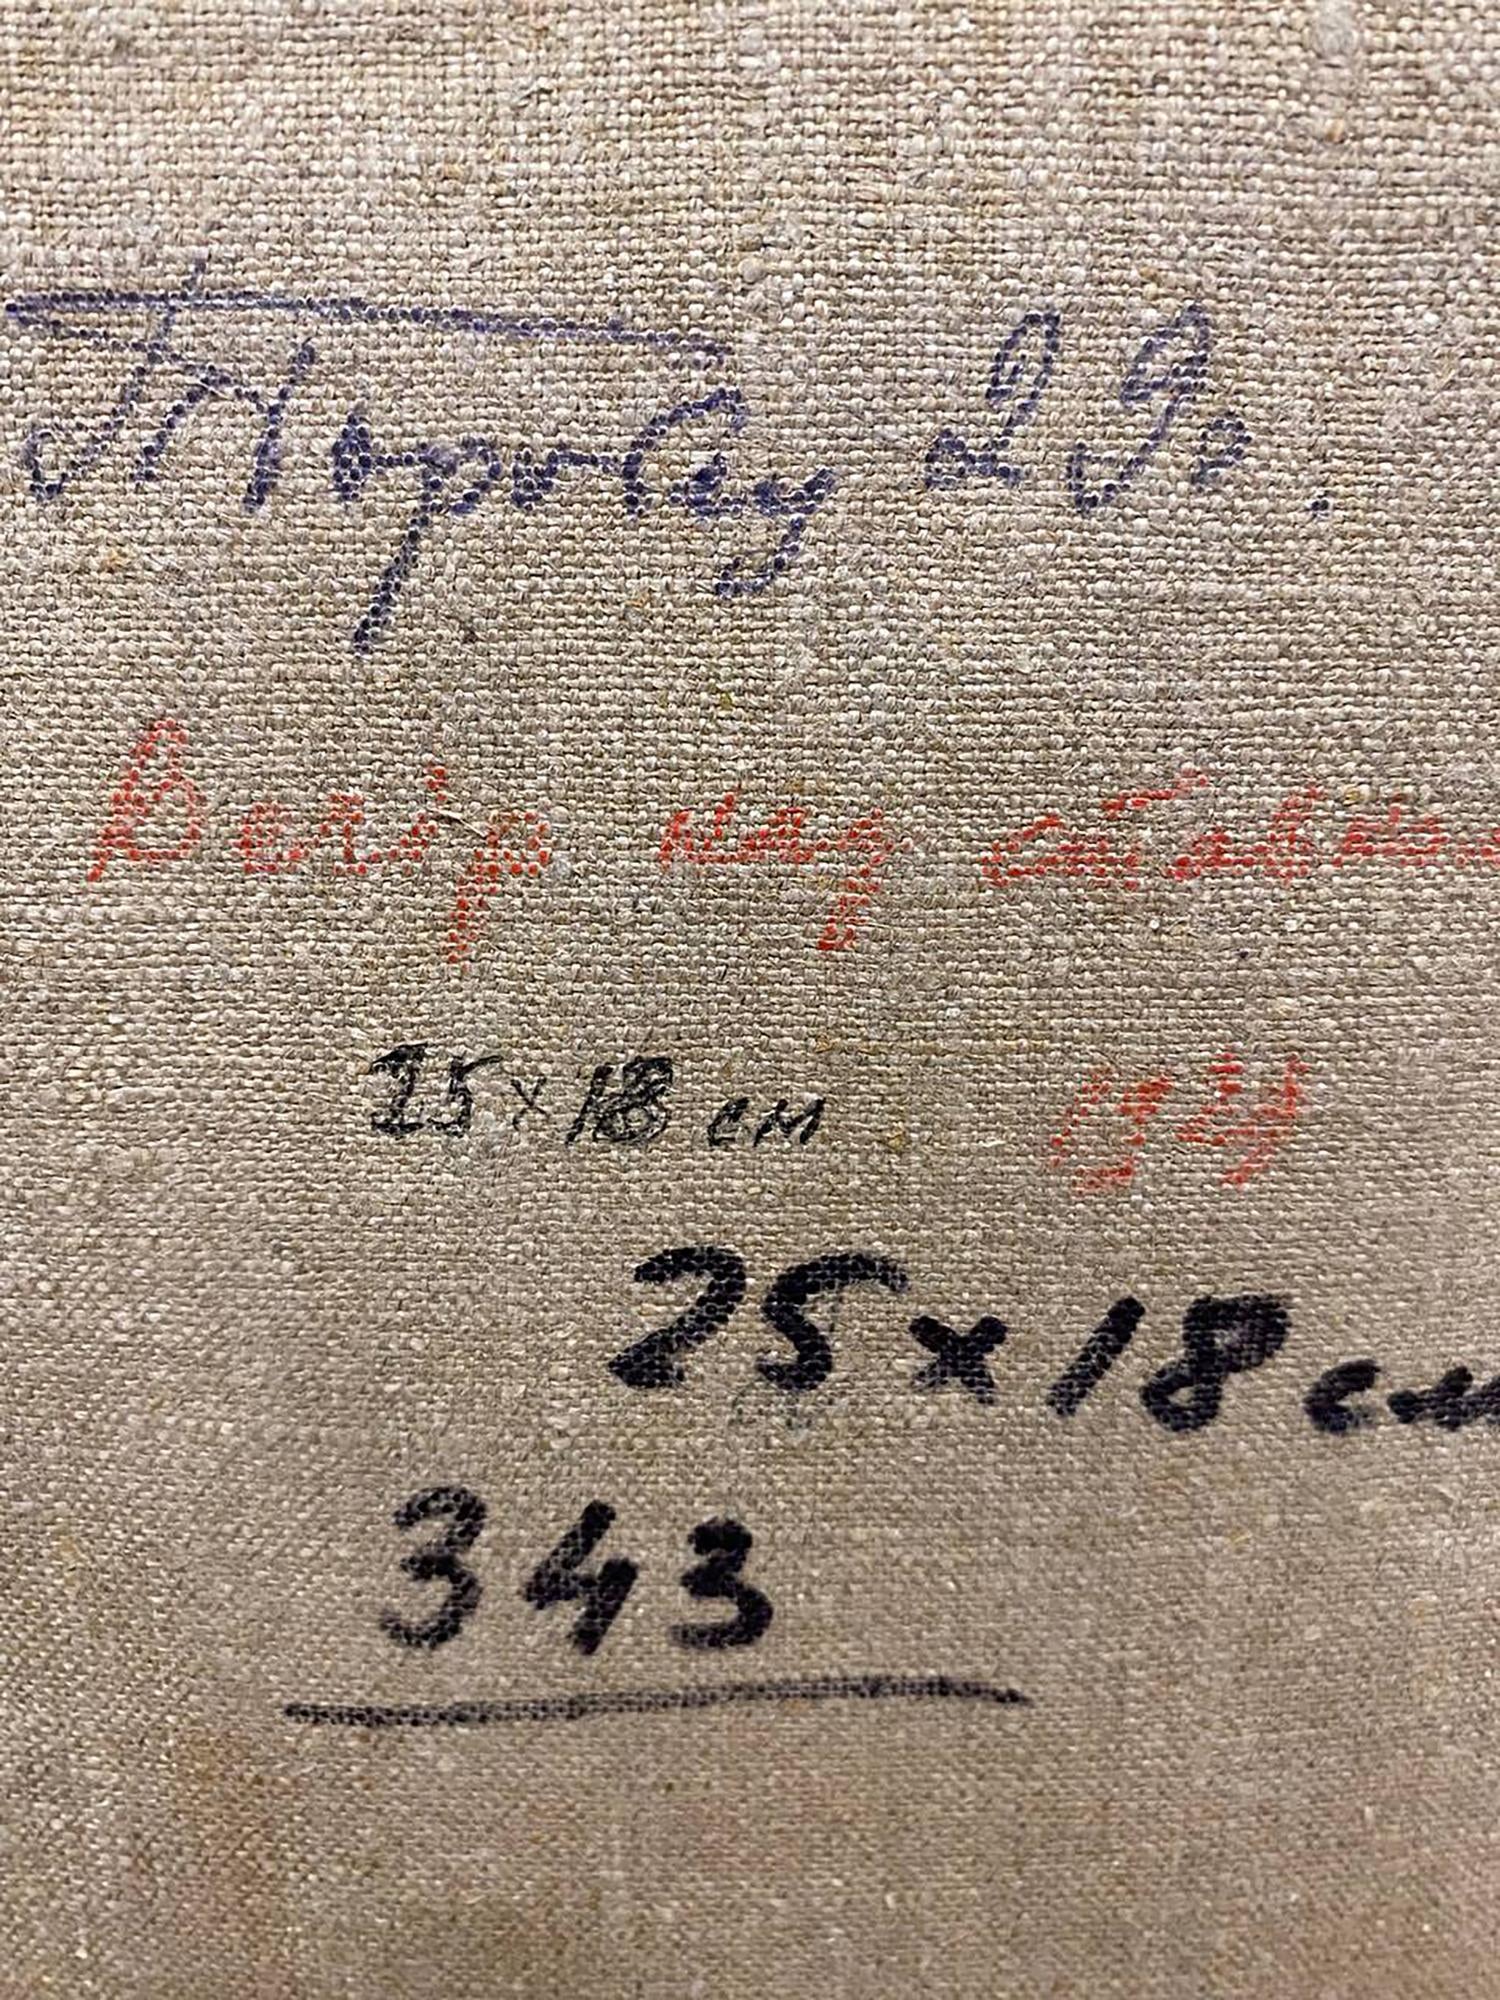 Вечір над ставом
25×18 см
64
25×18 см
343